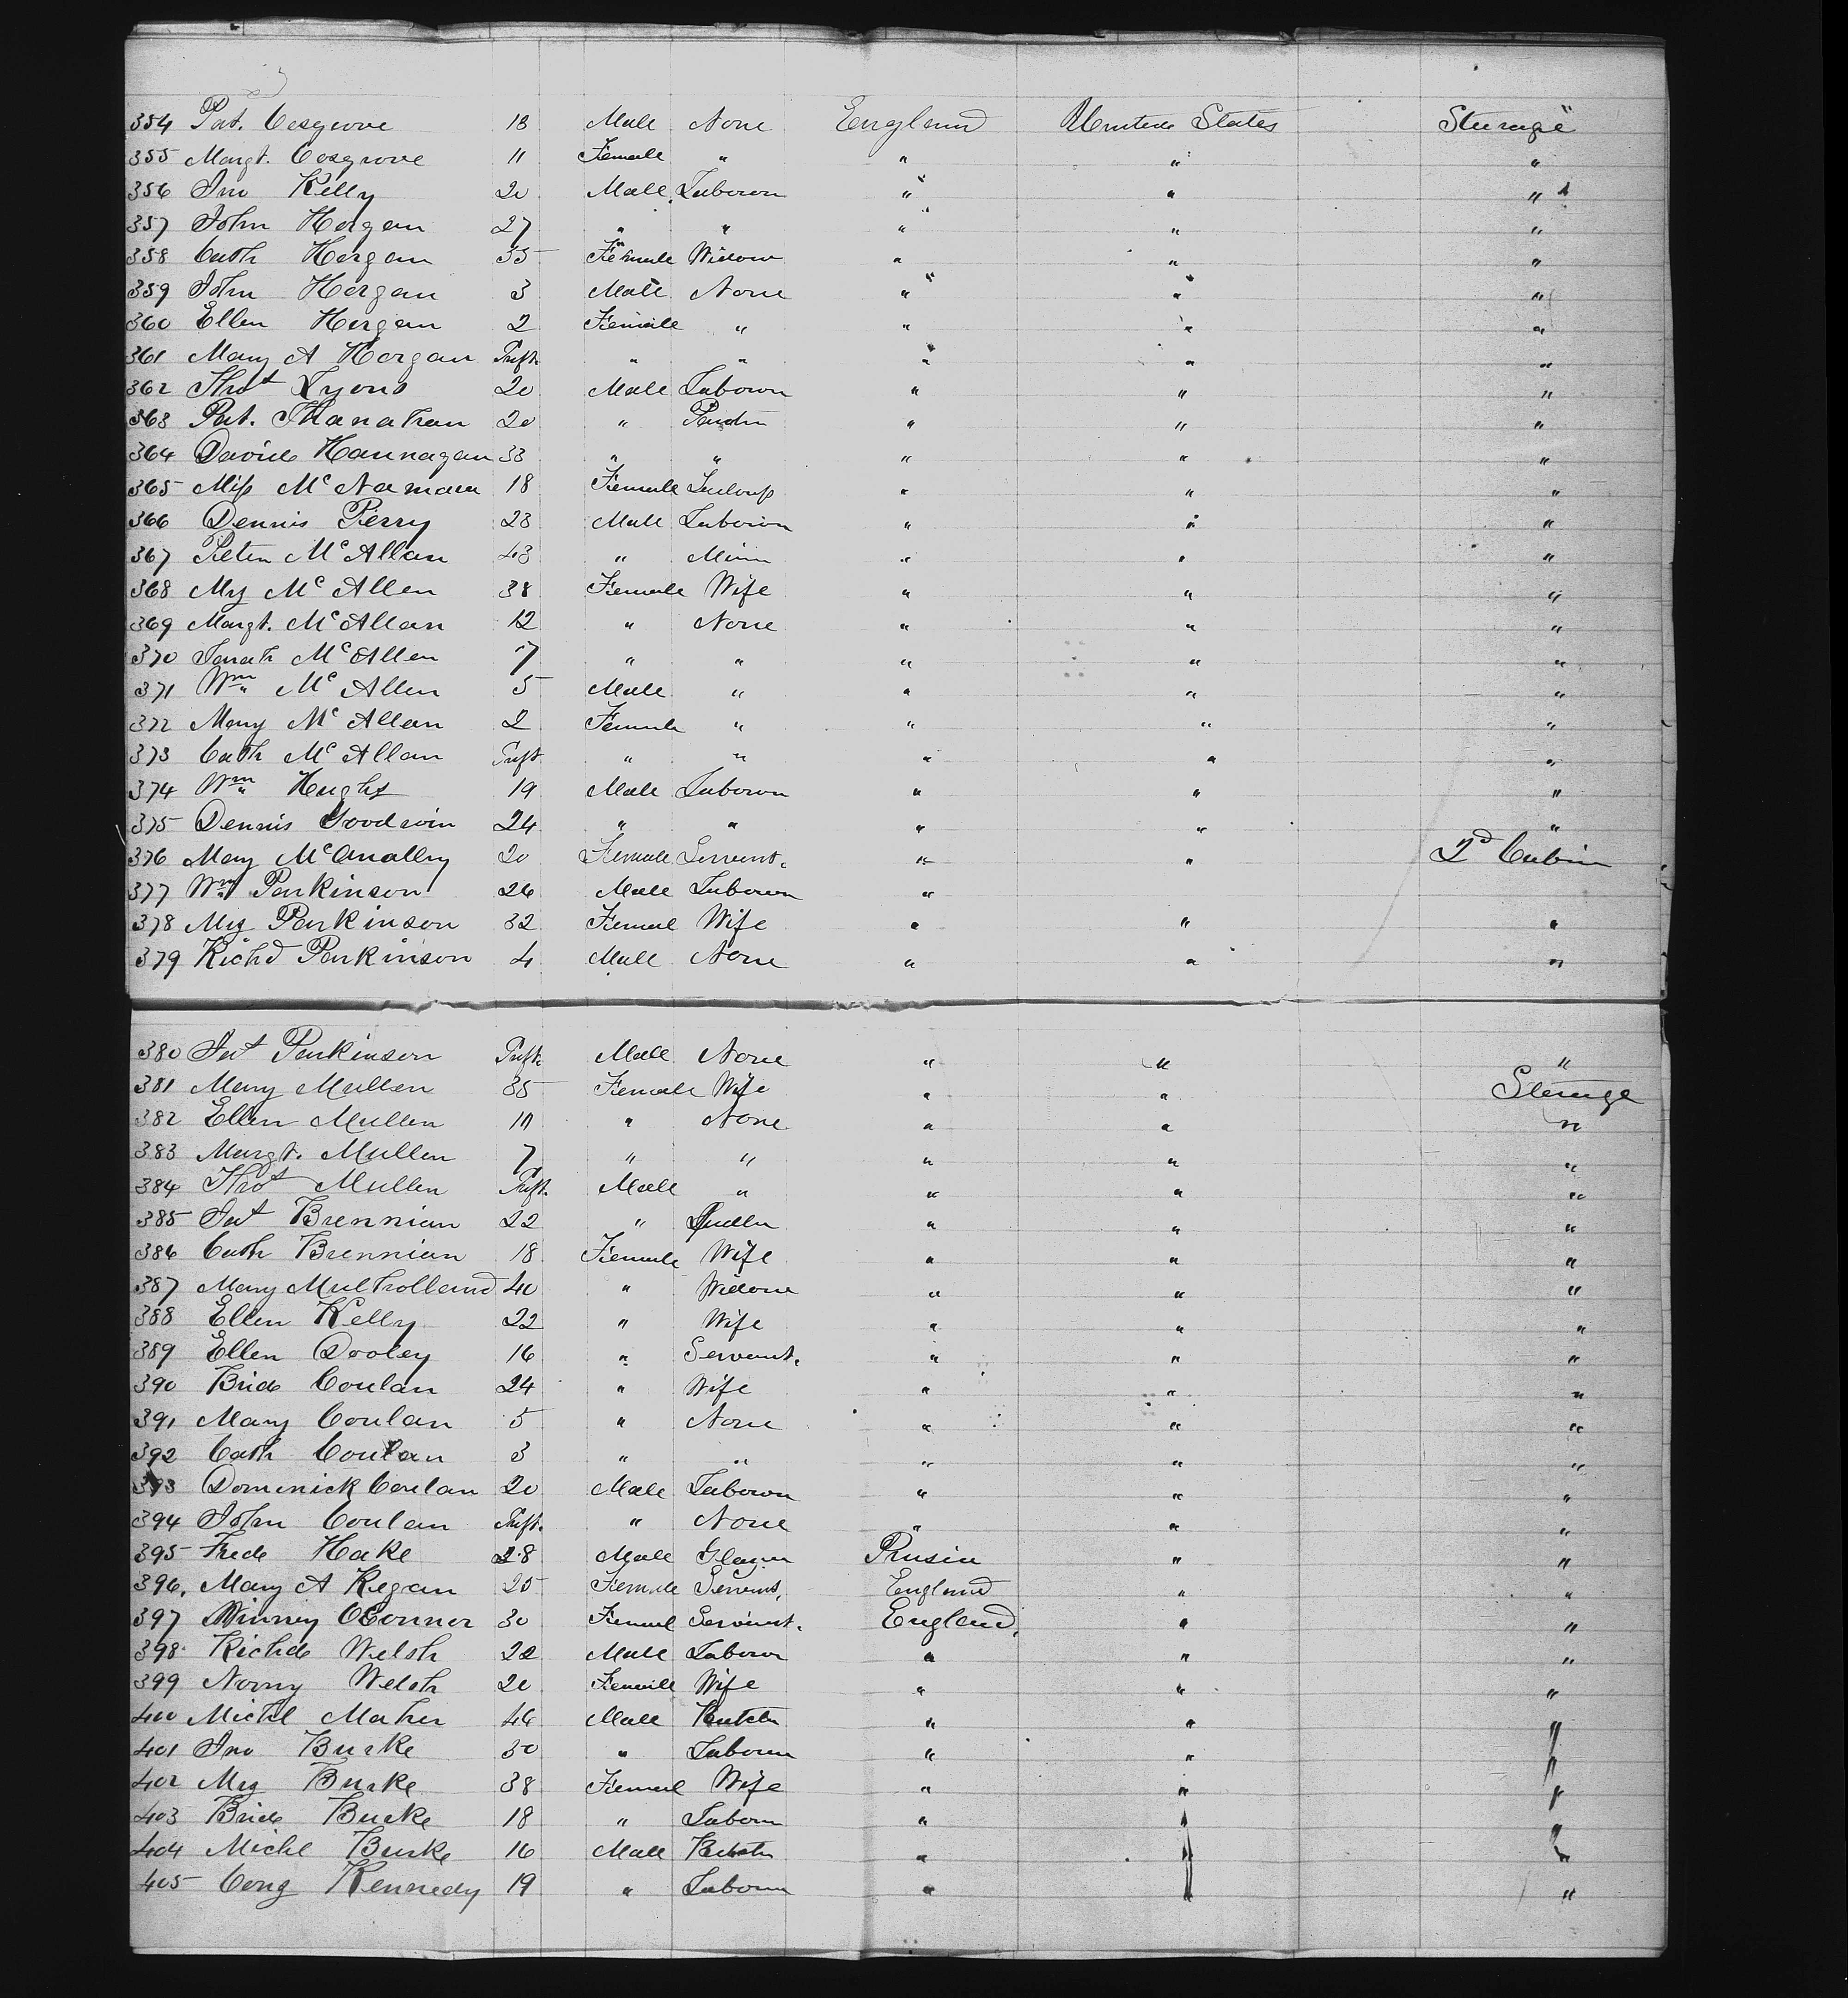 354 Pat. Cosgrove 13 Male None England United States Steerage
355 Margt. Cosgrove 11 Female " " " "
356 Jno Kelly 20 Male Labourer " " "
357 John Horgan 27 " " " " "
358 Cath Horgan 35 Female Widow " " "
359 John Horgan 3 Male None " " "
360 Ellen Horgan 2 Female " " " "
361 Mary A Horgan Inft. " " " " "
362 Thos Lyons 20 Male Labourer " " "
363 Pat. 20 " " " "
364 David Hannagan 33 " " " " "
365 Miss McNamara 18 Female " " "
366 Dennis Perry 23 Male Labourer " " "
367 Peter McAllan 43 " Miner " " "
368 Mrs McAllen 38 Female Wife " " "
369 Margt. McAllan 12 " None " " "
370 Sarah McAllen 7 " " " " "
371 Wm McAllen 5 Male " " " "
372 Mary McAllan 2 Female " " " "
373 Cath McAllan Inft. " " " " "
374 Wm Hughs 19 Male Labourer " " "
375 Dennis Goodwin 24 " " " " "
376 Mary McAnallry 20 Female Servant. " " 2d Cabin
377 Wm Parkinson 26 Male Labourer "
378 Mrs Parkinson 32 Female Wife " " "
379 Richd Parkinson 4 Male None " " "
380 Jas Parkinson Inft. Male None " " "
381 Mary Mullen 35 Female Wife " " Steerage
382 Ellen Mullen " None " " "
383 Margt. Mullen 7 " " " " "
384 Thos Mullen Inft. Male " " " "
385 Jas Brennian 22 " " " "
386 Cath Brennian 18 Female Wife " " "
387 Mary Mulholland 40 " Widow " " "
388 Ellen Kelly 22 " Wife " " "
389 Ellen Dooley 16 " Servant. " " "
390 Brid Conlan 24 " Wife " " "
391 Mary Conlan 5 " None " " "
392 Cath Conlan 3 " " " " "
393 Dominick Conlan 20 Male Labourer " " "
394 John Conlan Inft. " None " " "
395 Fred Hake 28 Male Glazier Prusia " "
396. Mary A Regan 25 Female Servant. England " "
397 Winney OConnor 30 Female Servant. England. " "
398 Richd Welsh 22 Male Labourer " " "
399 Norry Welsh 20 Female Wife " " "
400 Michl Maher 46 Male Butcher " " "
401 Jno Burke 30 " Labourer " " "
402 Mrs Burke 38 Female Wife " " "
403 Brid Burke 18 " Labourer " " "
404 Michl Burke 16 Male Butcher " " "
405 Kennedy 19 " Labourer " " "